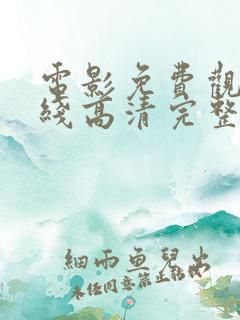 電影免費觀
綫高清完整
細雨魚兒出
未经同意禁止转载